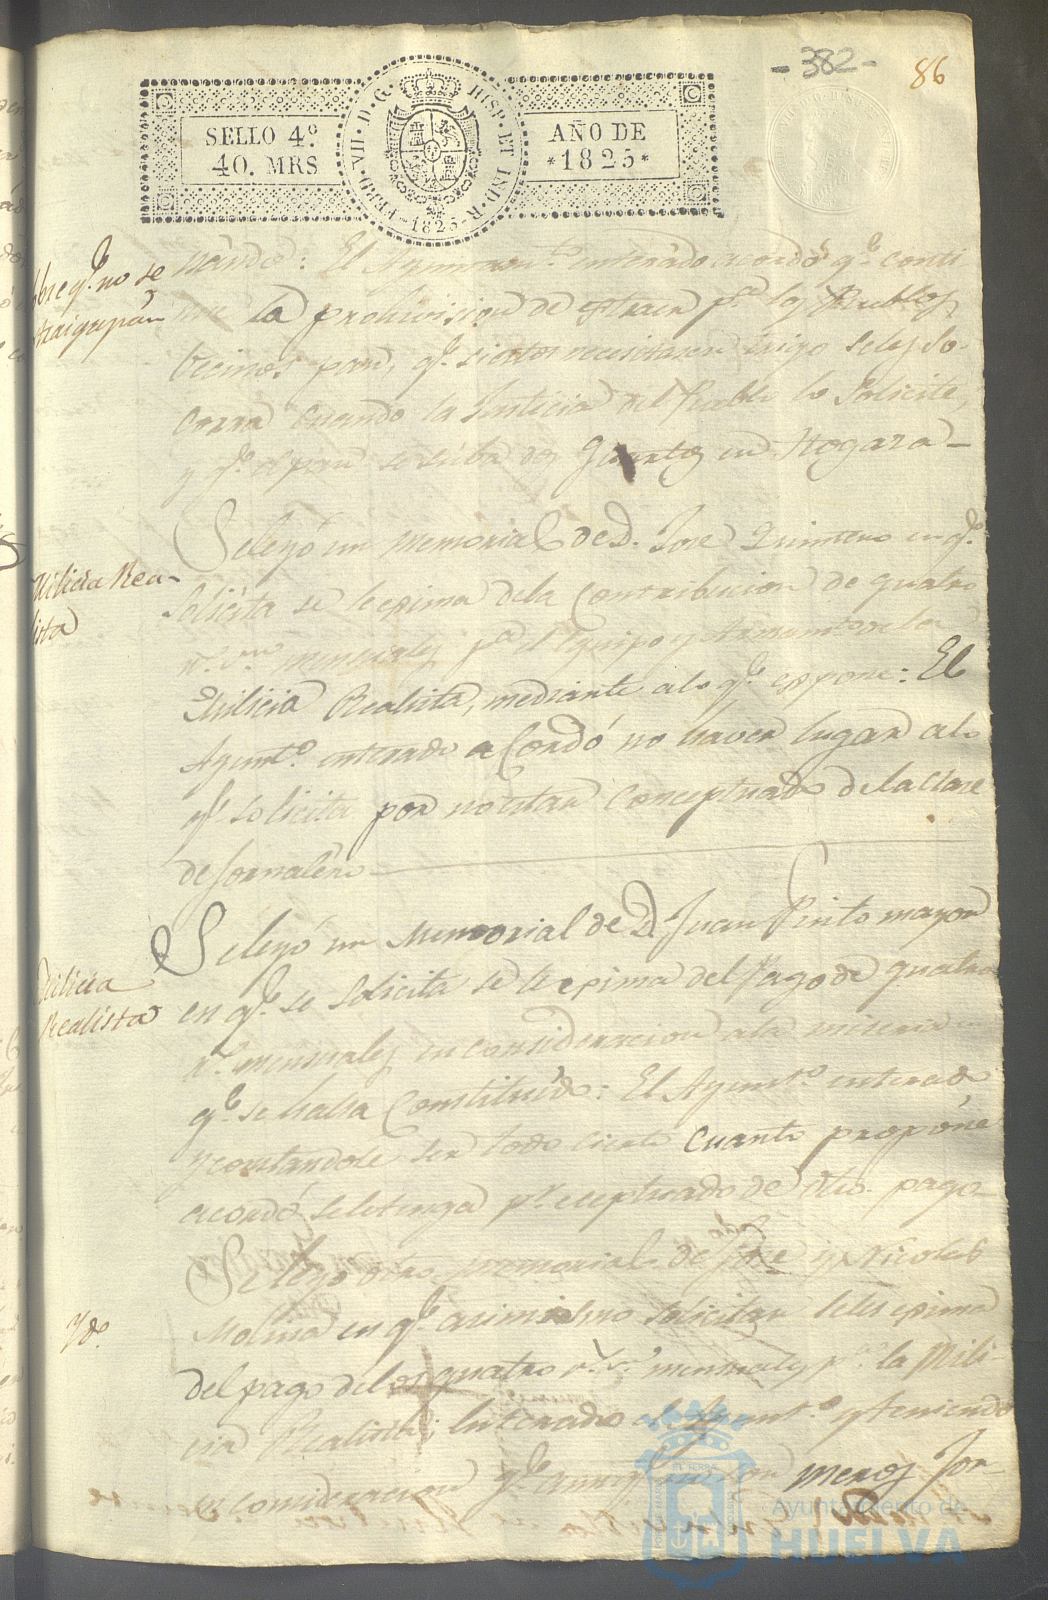 -382-
86
SELLO 4º
40. MRS
FERD. VII. D. G. HISP. ET IND. R.
1825
AÑO DE
*1825*
bre qe. no se
traiga pan
nando: El Ayuntamto. enterado acordó qe. conti-
nue la prohivision de extraer pa. los Pueblos
Vecinos pan, qe. si estos necesitasen trigo seles so-
corra cuando la Justicia del Pueblo lo Solicite,
y qe. el pan se suba dos Quartos en Hogaza-
Milicia Rea-
lista
Se leyó un Memorial de D. Jose Quintero en qe.
Solicita se le exima dela Contribucion de quatro
rs. vn. mensuales pa. el Equipo y Armamto. dela
Milicia Realista, mediante alo qe. expone: El
Ayunto. enterado aCordó no haver lugar alo
qe. solicita por no estar Conceptuado de la clase
de Jornalero
Milicia
Realista
Se leyó un Memorial de D. Juan Pinto mayor
en qe. se Solicita se le exima del Pago de quatro
rs. mensuales en consideracion ala miseria
qe. se halla Constituido: El Ayunto. enterado
y constandole ser todo cierto cuanto propone
acordó se le tenga pr. eceptuado de dho. pago
Ydo.
Se leyo otro memorial de Jose y Nicolas
Molina en qe. asimismo solicitan seles exima
del pago delos quatro rs. vn. mensuales pa. la Mili-
cia Realista; Enterado el Ayunto. y teniendo
en consideracion qe. aunque son meros Jor-
Ayuntamiento de
HUELVA